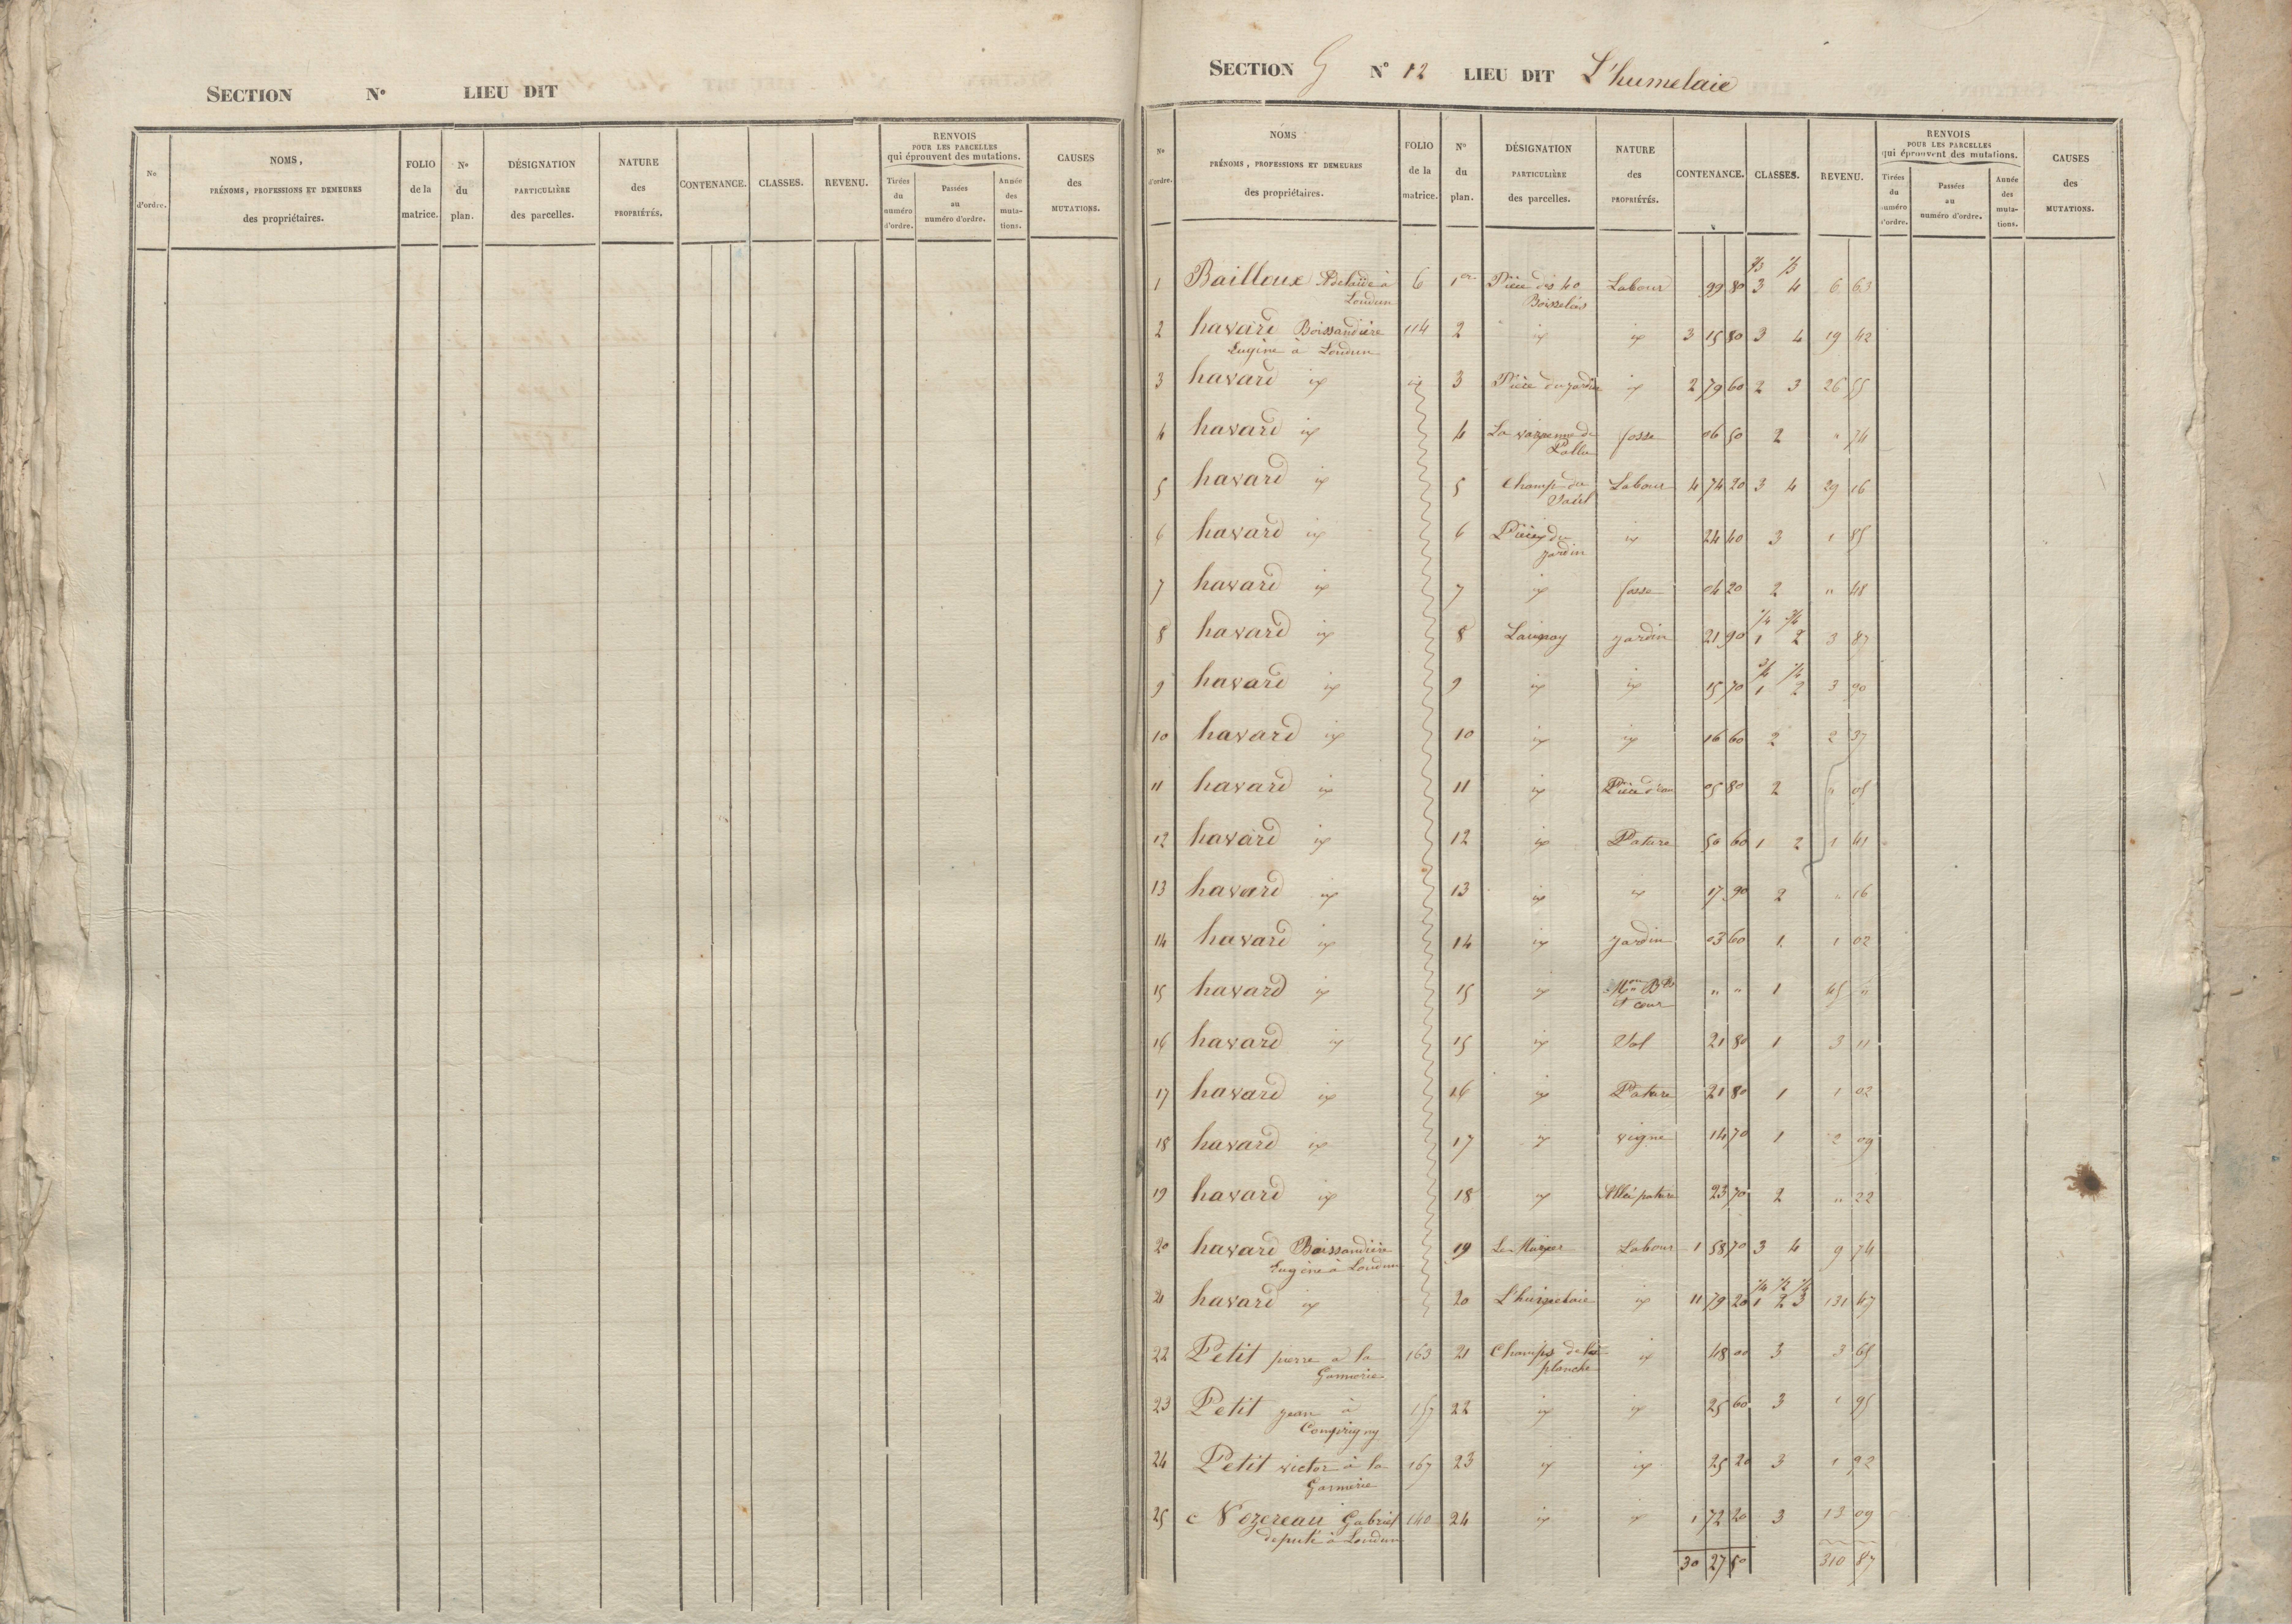 SECTION N° LIEU DIT
No d'ordre.
NOMS, PRÉNOMS, PROFESSIONS ET DEMEURES des propriétaires.
FOLIO de la matrice.
No du plan.
DÉSIGNATION PARTICULIÈRE des parcelles.
NATURE des PROPRIÉTÉS.
CONTENANCE.
CLASSES.
REVENU.
RENVOIS POUR LES PARCELLES qui éprouvent des mutations.
Tirées du numéro d'ordre.
Passées au numéro d'ordre.
Année des muta-tions.
CAUSES des MUTATIONS.
SECTION G N° 12 LIEU DIT L'humelaie
No d'ordre.
NOMS PRÉNOMS, PROFESSIONS ET DEMEURES des propriétaires.
FOLIO de la matrice.
No du plan.
DÉSIGNATION PARTICULIÈRE des parcelles.
NATURE des PROPRIÉTÉS.
CONTENANCE.
CLASSES.
REVENU.
RENVOIS POUR LES PARCELLES qui éprouvent des mutations.
Tirées du numéro d'ordre.
Passées au numéro d'ordre.
Année des muta-tions.
CAUSES des MUTATIONS.
1 Bailloux Adelaïde à 6 1er Pièce des 40 Labour 99 80 3 4 6 63
Loudun Boisselées
2 havard Boissandière 114 2 id id 3 15 80 3 4 19 42
Eugène à Loudun
3 havard id id 3 Pièce du jardin id 2 79 60 2 3 26 55
4 havard id 4 La garenne de fosse 06 50 2 " 74
5 havard id 5 Champ du Labour 4 74 20 3 4 29 16
6 havard id 6 Pièce du id 24 40 3 1 85
jardin
7 havard id 7 id fosse 04 20 2 " 48
1/4 3/4
8 havard id 8 Launay jardin 21 90 1 2 3 87
9 havard id 9 id id 15 70 1 2 3 90
10 havard id 10 id id 16 60 2 2 37
11 havard id 11 id Pièce d'eau 05 80 2 " 05
12 havard id 12 id Pature 50 60 1 2 1 41
13 havard id 13 id id 17 90 2 " 16
14 havard id 14 id jardin 03 60 1 1 02
15 havard id 15 id Mon Bts " " 1 45 "
et cour
16 havard id 15 id Sol 21 80 1 3 11
17 havard id 16 id Pature 21 80 1 1 02
18 havard id 17 id vigne 14 70 1 2 09
19 havard id 18 id Allée pature 23 70 2 " 22
20 havard Boissandière 19 Labour 1 58 70 3 4 9 74
Eugène à Loudun
1/4 1/2 1/4
21 havard id 20 L'humelaie id 11 79 20 1 2 3 131 47
22 Petit pierre à la 163 21 Champs de la id 48 00 3 3 65
planche
23 Petit jean à 157 22 id id 25 60 3 1 95
24 Petit victor à la 167 23 id id 25 20 3 1 92
25 c Nozereau Gabriel 140 24 id id 1 72 20 3 13 09
deputé à Loudun
30 27 50 310 87